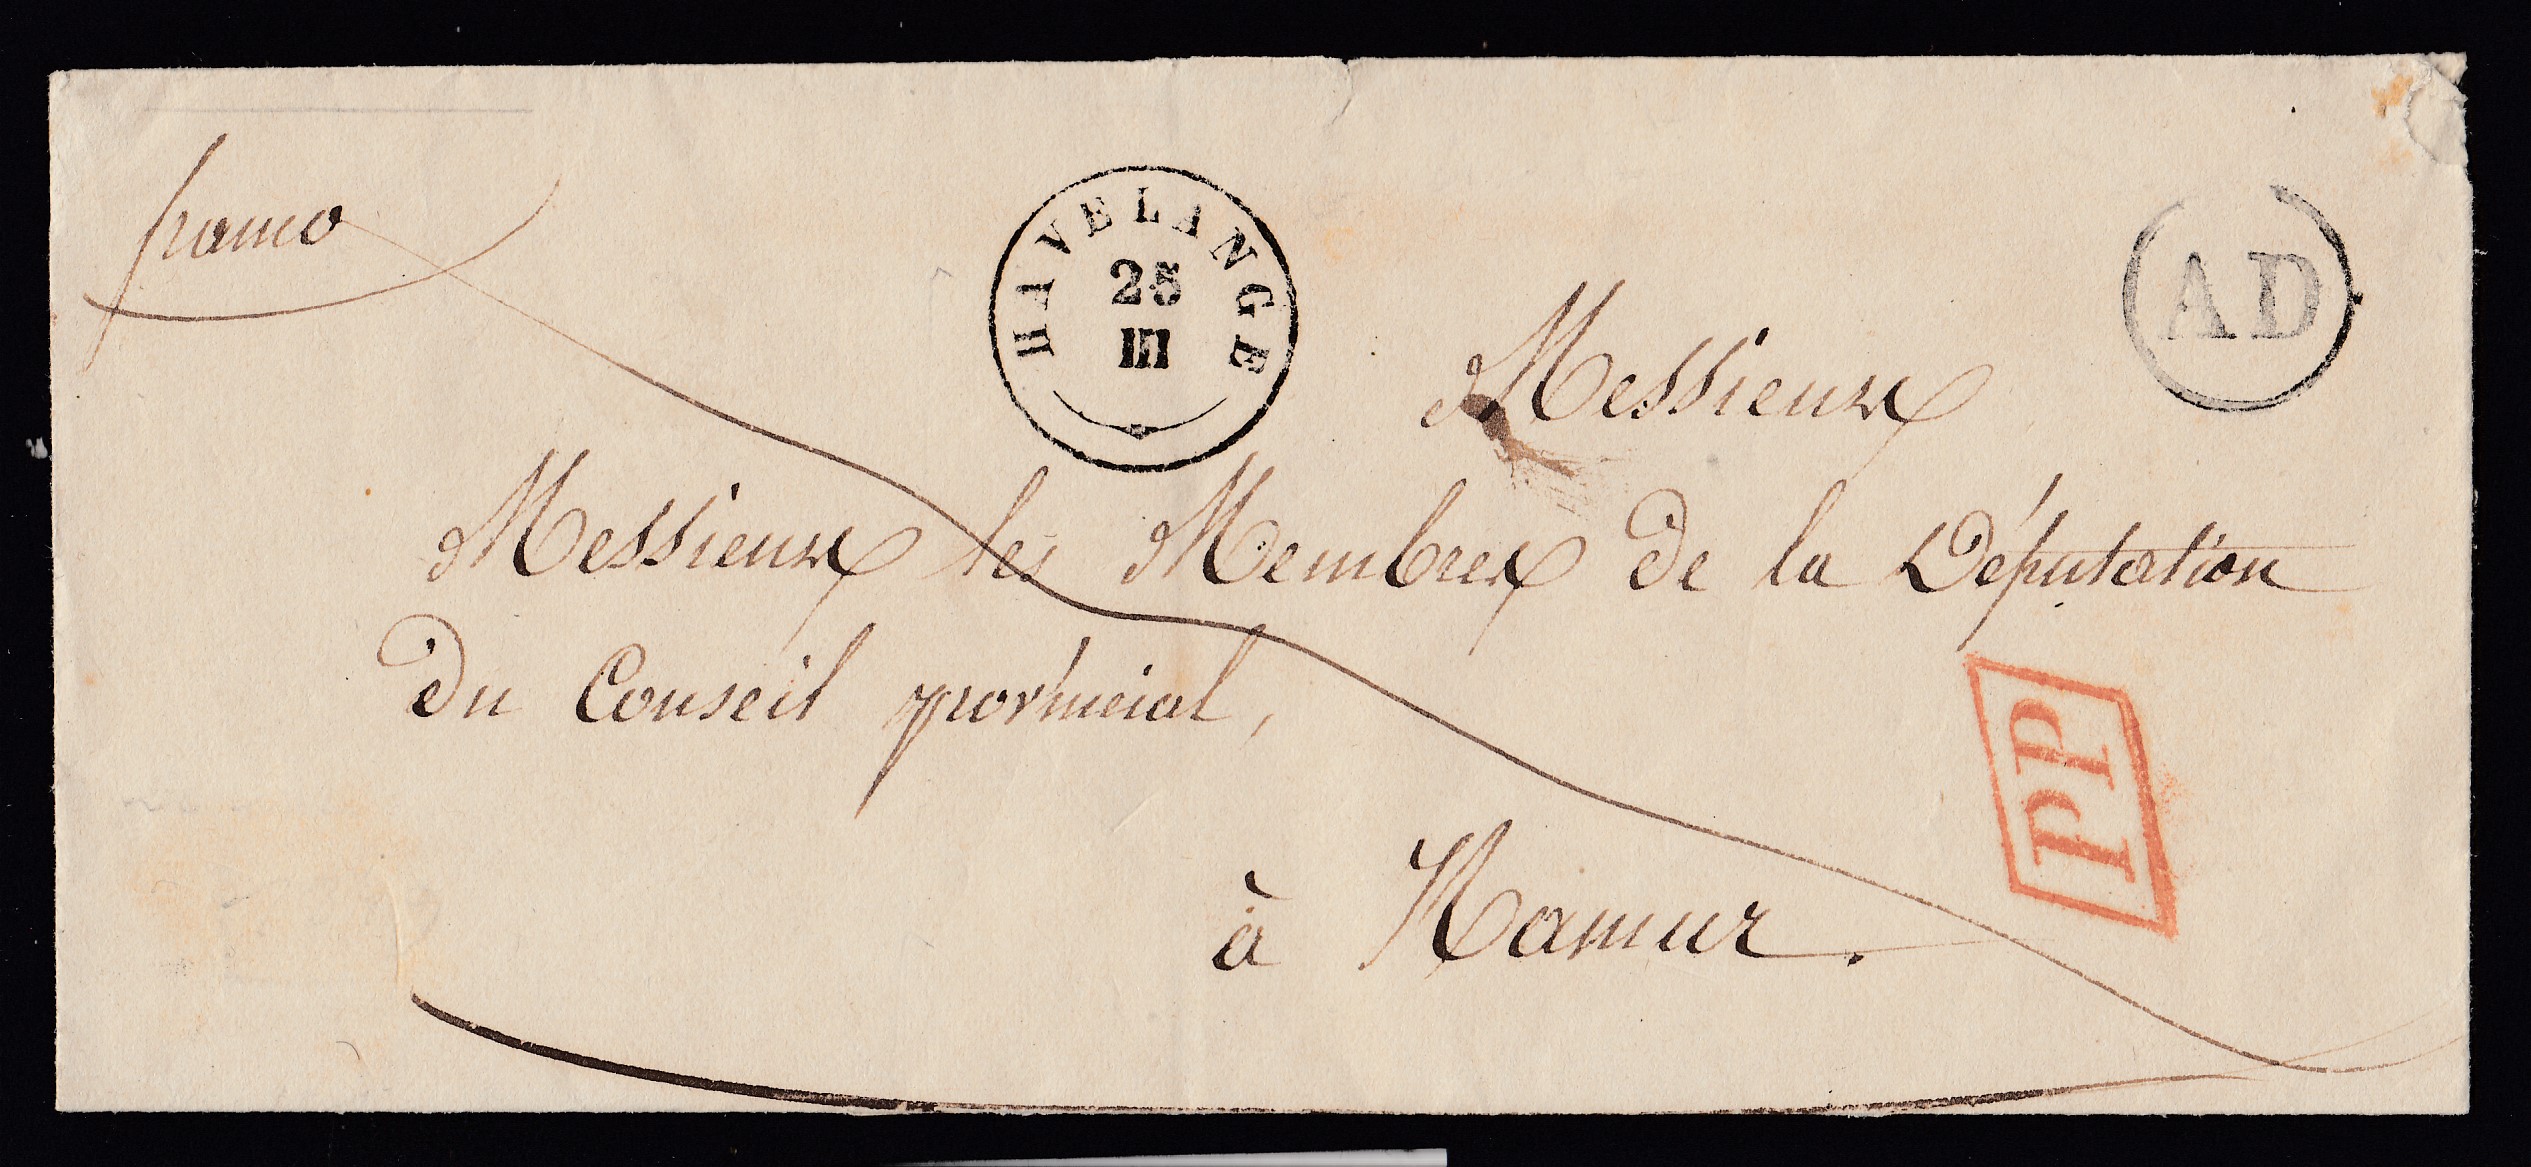 franco
HAVELANGE
25
III
AD
Messieurs
Messieurs les Membres de la Députation
du Conseil provincial,
PP
à Namur.